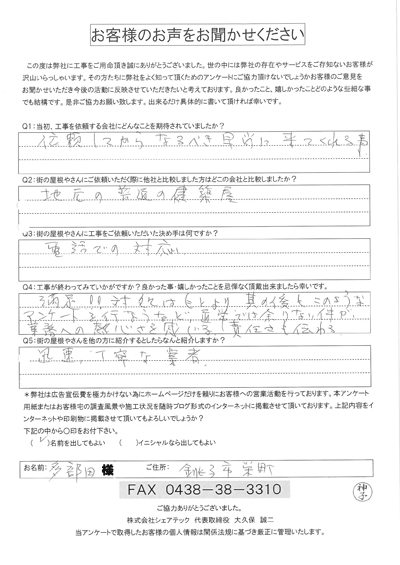 お客様のお声をお聞かせください
この度は弊社に工事をご用命頂き誠にありがとうございました。世の中には弊社の存在やサービスをご存知ないお客様が
沢山いらっしゃいます。その方たちに弊社をよく知って頂くためのアンケートにご協力頂けないでしょうかお客様のご意見を
お聞かせいただき今後の活動に反映させていただきたいと考えております。良かったこと、嬉しかったことどのような些細な事
でも結構です。是非ご協力お願い致します。出来るだけ具体的に書いて頂ければ幸いです。
Q1:当初、工事を依頼する会社にどんなことを期待されていましたか?
依頼してからなるべき早目に来てくれる事
Q2:街の屋根やさんにご依頼いただく際に他社と比較しました方はどこの会社と比較しましたか?
地元の普通の建築屋
Q3:街の屋根やさんに工事をご依頼いただいた決め手は何ですか?
電話での対応
Q4:工事が終わってみていかがですか?良かった事・嬉しかったことを忌憚なく頂戴出来ましたら幸いです。
満足!! 対応はもとより其の後もこのような
アンケートを行うなど、通常では余りない件が
業務への熱心さを感じる 責任さも伝わる
Q5:街の屋根やさんを他の方に紹介するとしたらなんと紹介しますか?
迅速、丁寧な業者
*弊社は広告宣伝費を極力かけない為にホームページだけを頼りにお客様への営業活動を行っております。本アンケート
用紙またはお客様宅の調査風景や施工状況を随時ブログ形式のインターネットに掲載させて頂いております。上記内容をイ
ンターネットや印刷物に掲載させて頂いてもよろしいでしょうか?
下記の中から〇印をお付下さい。
(✓)名前を出してもよい ( )イニシャルなら出してもよい
お名前: 多部田 様 ご住所: 銚子市栄町
FAX 0438-38-3310
神子
ご協力ありがとうございました。
株式会社シェアテック 代表取締役 大久保 誠二
当アンケートで取得したお客様の個人情報は関係法規に基づき厳正に管理いたします。